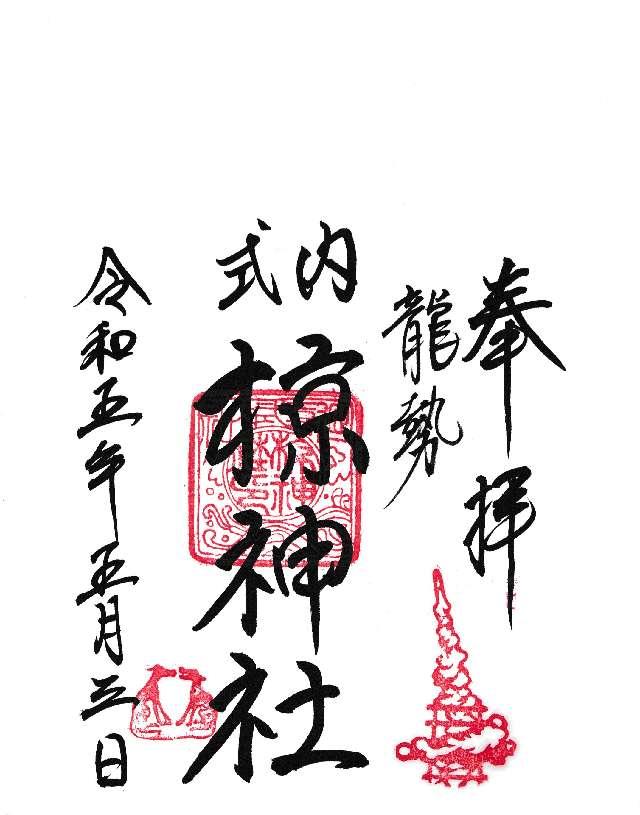 奉拝
龍勢
式内
椋神社
令和五年五月三日